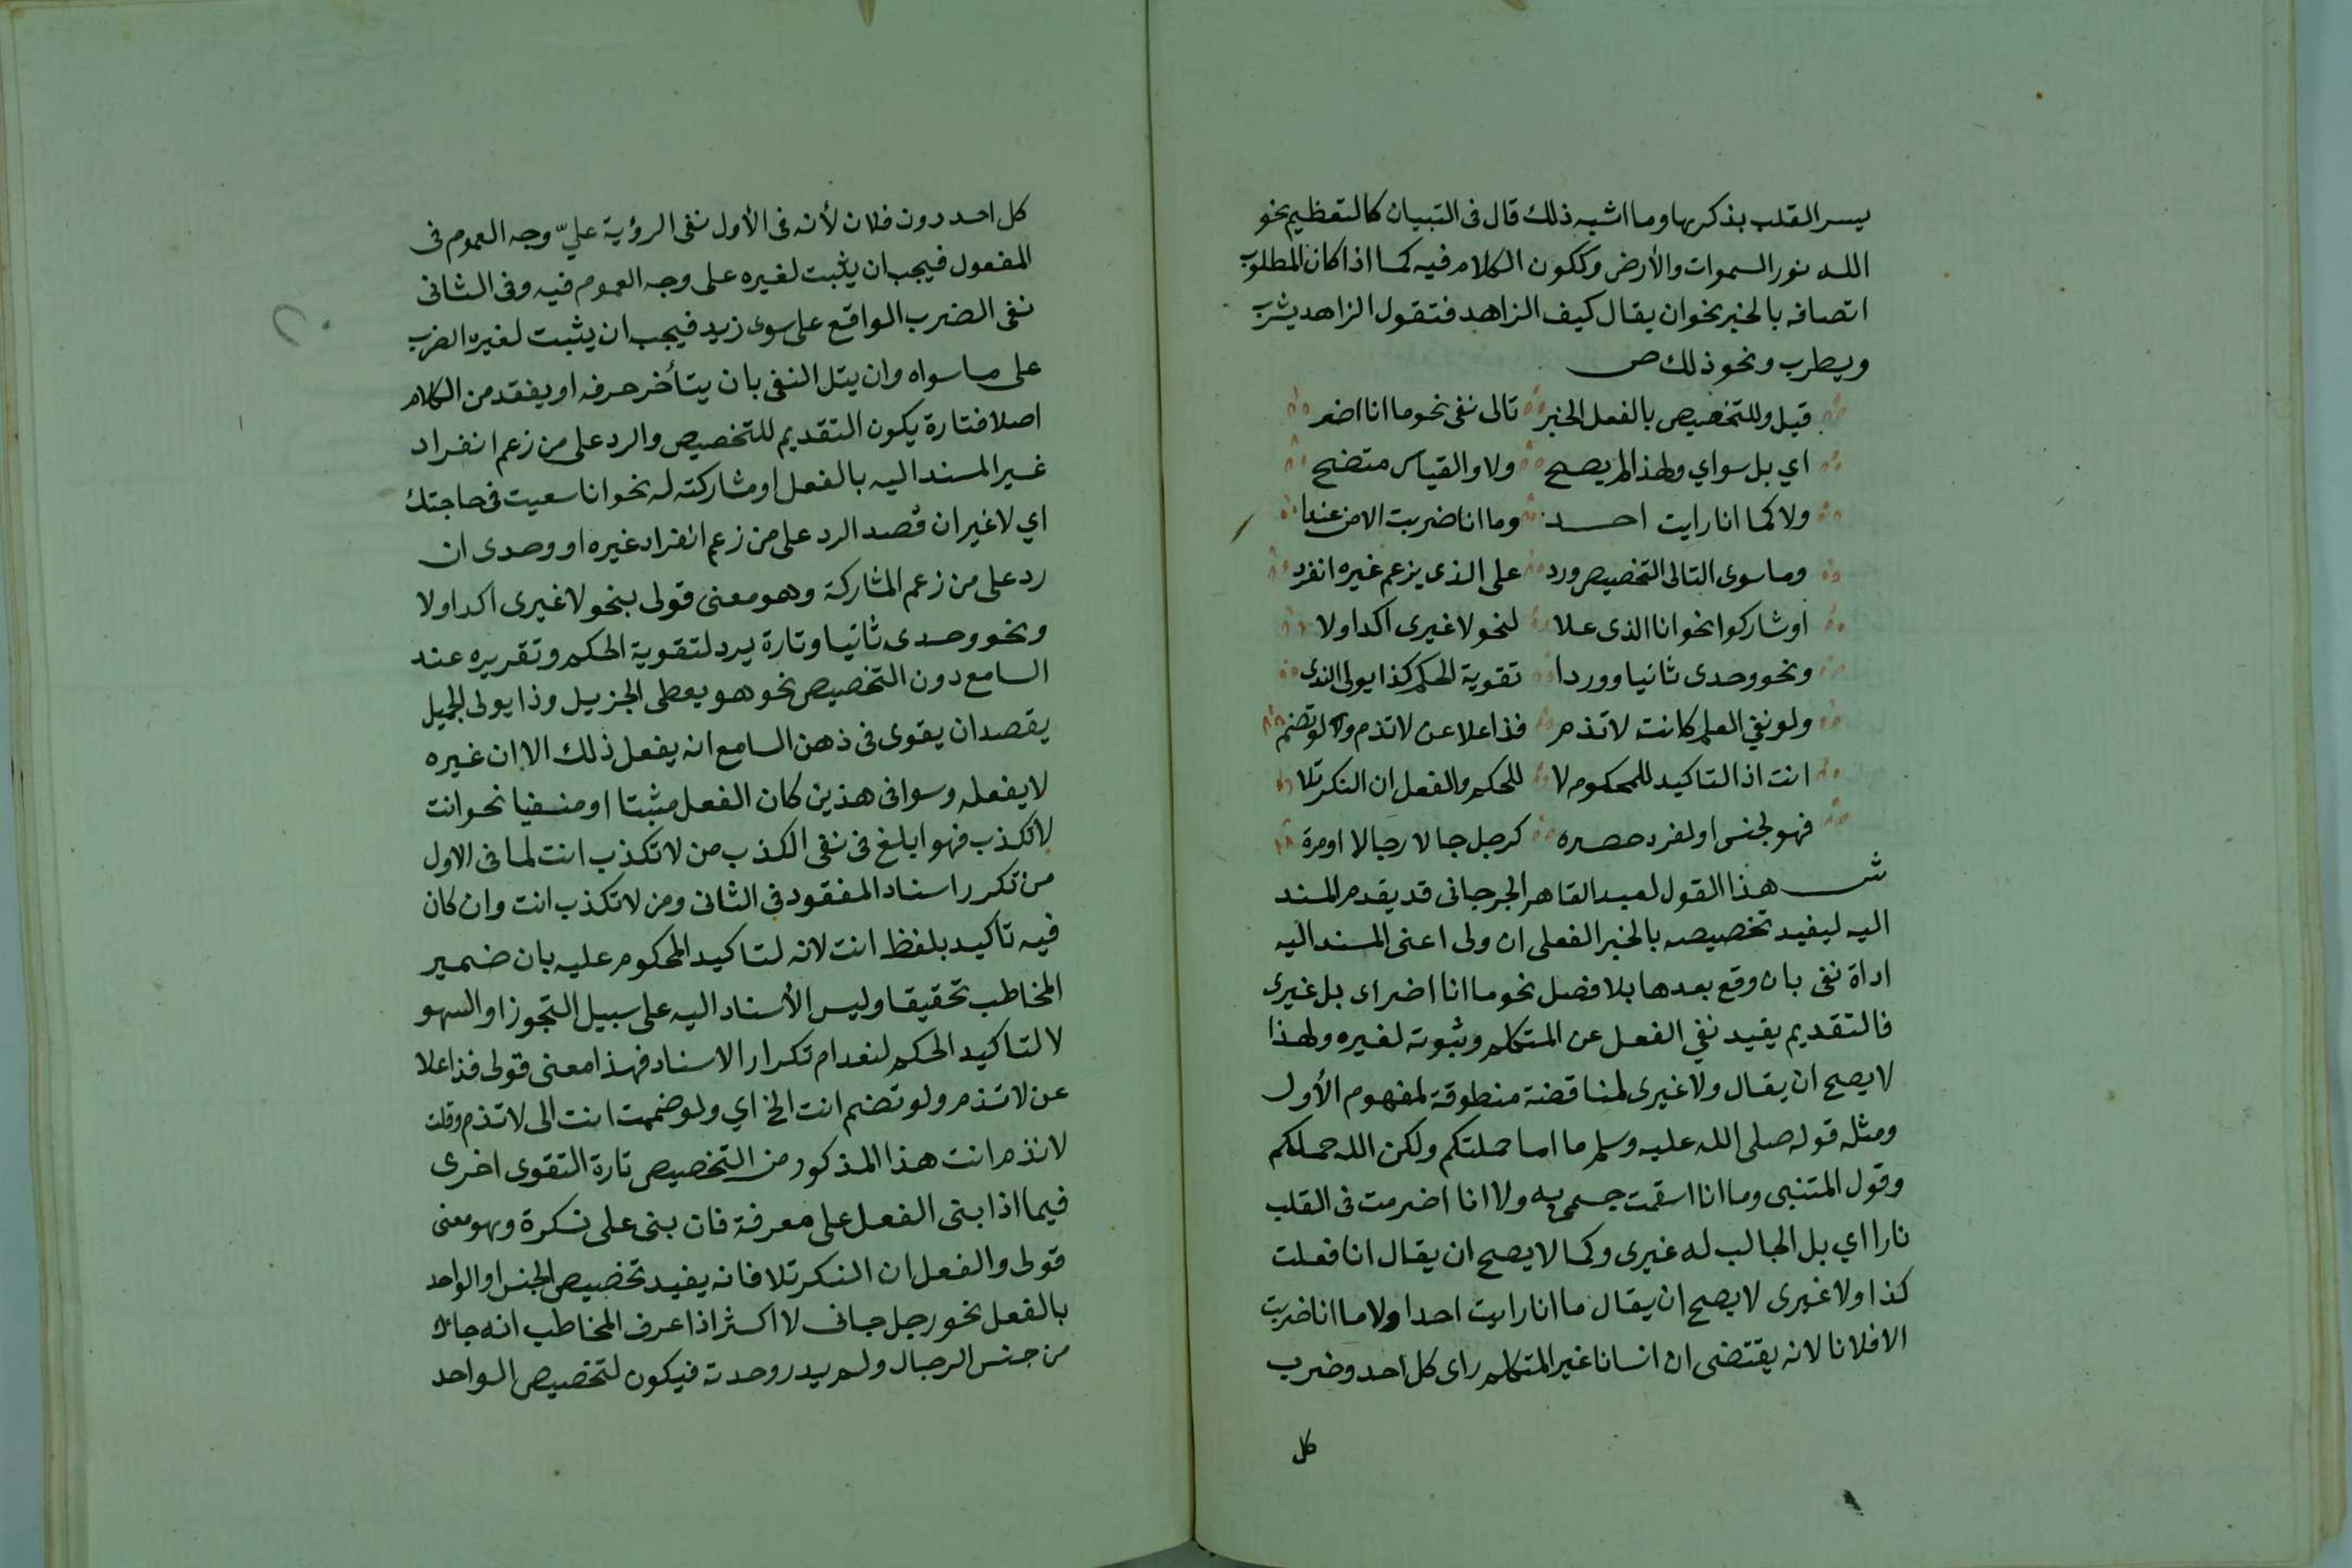 يسر القلب بذكرها وما اشبه ذلك قال فى التبيان كالتعظيم نحو
الله نور السموات والأرض وككون الكلام فيه كما اذا كان المطلوب
اتصافه بالخبر نحو ان يقال كيف الزاهد فتقول الزاهد يشرب
ويطرب ونحو ذلك ص
قيل وللتخصيص بالفعل الخبر تالى نفى نحو ما انا اضر
اي بل سواي ولهذا لم يصح ولا والقياس متضح
ولا كما انا رايت احد وما انا ضربت الا من عندا
وما سوى التالى التخصيص ورد على الذى يزعم غيره انفرد
او شاركوا نحو انا الذى علا لنحو لا غيرى اكد اولا
ونحو وحدى ثانيا ووردا تقوية الحكم كذا يولى الندى
ولو نفي العلم كانت لا تذم فذا علا عن لا تذم ولو تضم
انت اذ التاكيد للمحكوم لا للحكم والفعل ان النكر تلا
فهو لجنس او لفرد حصره كرجل جا لا رجالا او مرة
ش هذا القول لعبد القاهر الجرجانى قد يقدم المسند
اليه ليفيد تخصيصه بالخبر الفعلى ان ولى اعنى المسند اليه
اداة نفى بان وقع بعدها بلا فصل نحو ما انا اضر اى بل غيرى
فالتقديم يفيد نفي الفعل عن المتكلم وثبوته لغيره ولهذا
لا يصح ان يقال ولا غيرى لمناقضة منطوقة لمفهوم الأول
ومثله قوله صلى الله عليه وسلم ما انا حملتكم ولكن الله حملكم
وقول المتنبى وما انا اسقمت جسمى به ولا انا اضرمت فى القلب
نارا اي بل الجالب له غيرى وكما لا يصح ان يقال انا فعلت
كذا ولا غيرى لا يصح ان يقال ما انا رايت احدا ولا ما انا ضربت
الا فلانا لانه يقتضى ان انسانا غير المتكلم راى كل احد وضرب
كل
كل احد دون فلان لأنه فى الأول نفى الرؤية عليّ وجه العموم فى
المفعول فيجب ان يثبت لغيره على وجه العموم فيه وفى الثانى
نفى الضرب الواقع على سوى زيد فيجب ان يثبت لغيره الضرب
على ما سواه وان يتل النفى بان يتأخر حرفه او يفقد من الكلام
اصلا فتارة يكون التقديم للتخصيص والرد على من زعم انفراد
غير المسند اليه بالفعل او مشاركته له نحو انا سعيت فى حاجتك
اي لا غير ان قصد الرد على من زعم انفراد غيره او وحدى ان
رد على من زعم المشاركة وهو معنى قولى بنحو لا غيرى اكد اولا
ونحو وحدى ثانيا وتارة يرد لتقوية الحكم وتقريره عند
السامع دون التخصيص نحو هو يعطى الجزيل وذا يولى الجميل
يقصد ان يقوى فى ذهن السامع انه يفعل ذلك الا ان غيره
لا يفعله وسوا فى هذين كان الفعل مثبتا او منفيا نحو انت
لا تكذب فهو ابلغ فى نفى الكذب من لا تكذب انت لما فى الاول
من تكرر اسناد المفقود فى الثانى ومن لا تكذب انت وان كان
فيه تأكيد بلفظ انت لانه لتاكيد المحكوم عليه بان ضمير
المخاطب تحقيقا وليس الأسناد اليه على سبيل التجوز او السهو
لا لتاكيد الحكم لنعدام تكرار الاسناد فهذا معنى قولى فذا علا
عن لا تذم ولو تضم انت الخ اي ولو ضممت انت الى لا تذم وقلت
لا تذم انت هذا المذكور من التخصيص تارة التقوى اخرى
فيما اذا بنى الفعل على معرفة فان بنى على نكرة وهو معنى
قولى والفعل ان النكر تلا فانه يفيد تخصيص الجنس او الواحد
بالفعل نحو رجل جانى لا اكثر اذا عرف المخاطب انه جاك
من جنس الرجال ولم يدر وحدته فيكون لتخصيص الواحد